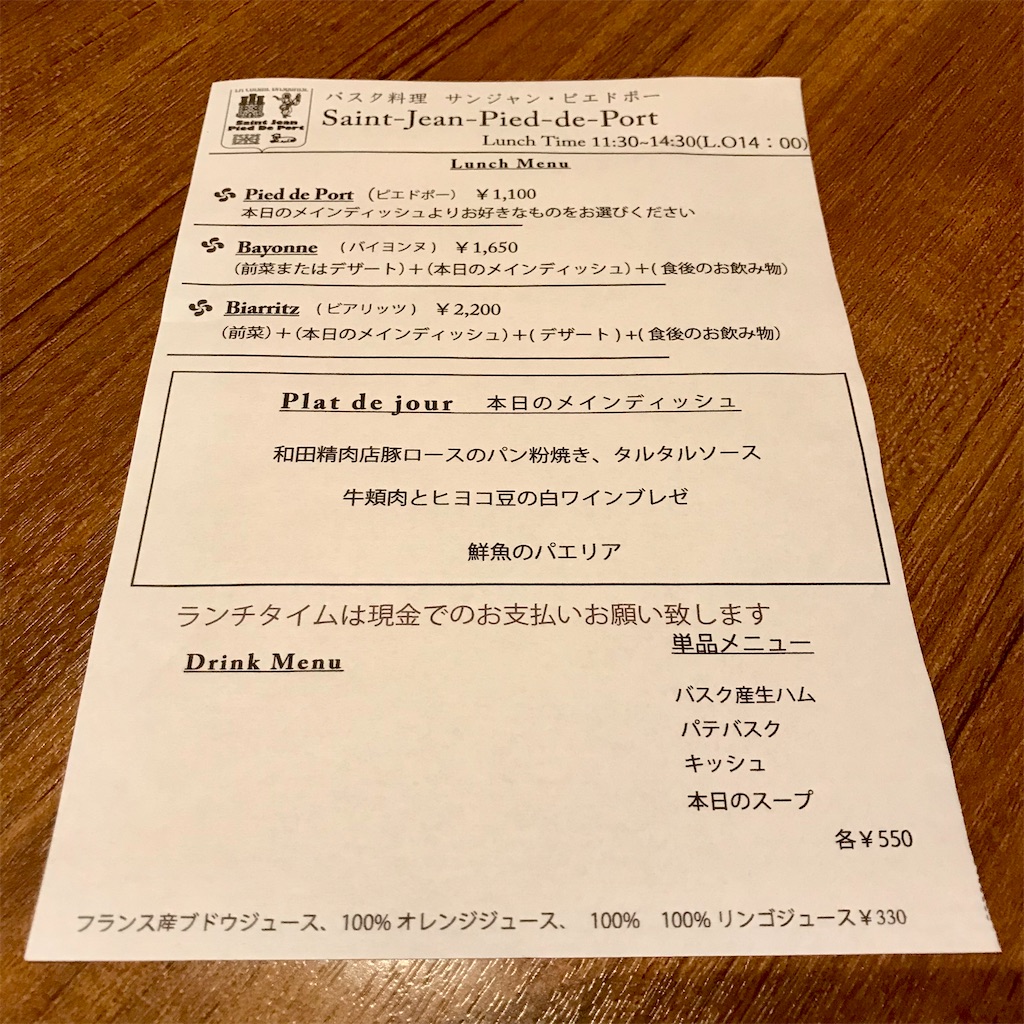 Saint Jean
Pied De Port
バスク料理 サンジャン・ピエドポー
Saint-Jean-Pied-de-Port
Lunch Time 11:30~14:30(L.O14：00)
Lunch Menu
Pied de Port （ピエドポー） ￥1,100
本日のメインディッシュよりお好きなものをお選びください
Bayonne （バイヨンヌ） ￥1,650
（前菜またはデザート）＋（本日のメインディッシュ）＋( 食後のお飲み物）
Biarritz （ビアリッツ） ￥2,200
（前菜）＋（本日のメインディッシュ）＋( デザート ) ＋( 食後のお飲み物）
Plat de jour 本日のメインディッシュ
和田精肉店豚ロースのパン粉焼き、タルタルソース
牛頬肉とヒヨコ豆の白ワインブレゼ
鮮魚のパエリア
ランチタイムは現金でのお支払いお願い致します
単品メニュー
Drink Menu
バスク産生ハム
パテバスク
キッシュ
本日のスープ
各￥550
フランス産ブドウジュース、100% オレンジジュース、 100% 100% リンゴジュース￥330